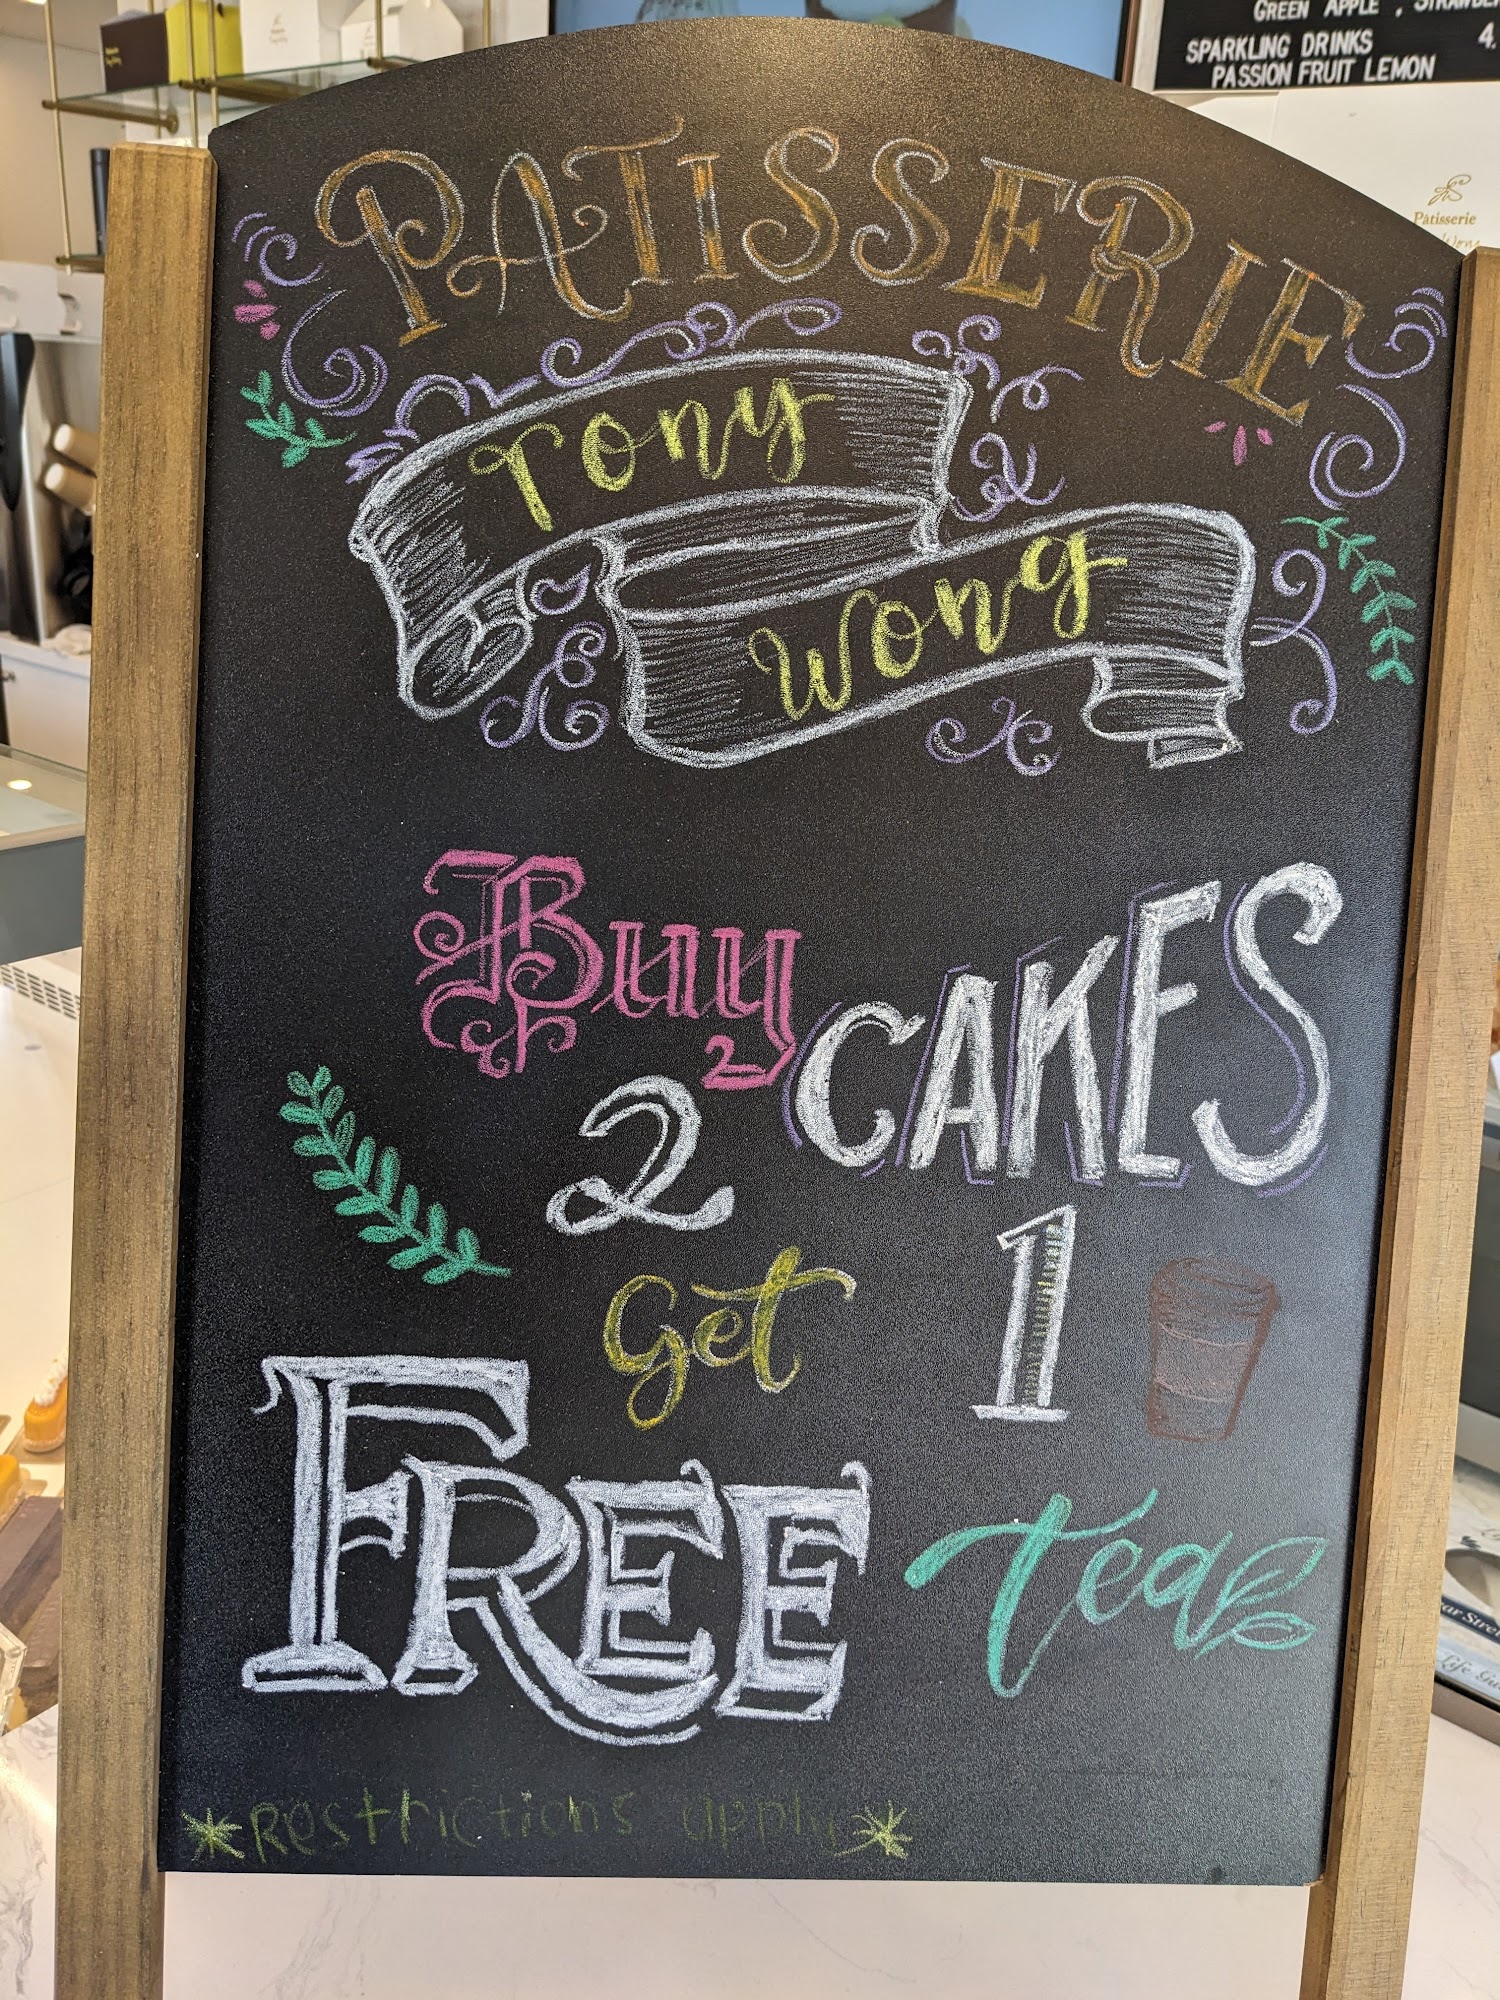 GREEN APPLE,
SPARKLING DRINKS 4.
PASSION FRUIT LEMON
Pâtisserie
PATISSERIE
Tony
Wong
Buy
2 CAKES
get 1
FREE tea
*Restrictions apply*